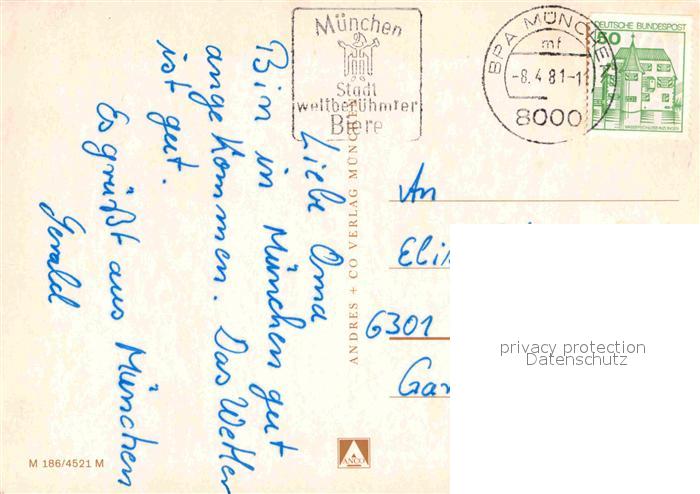 Liebe Oma
Bin in München gut
angekommen. Das Wetter
ist gut.
Es grüßt aus München
Gerald
München
Stadt
weltberühmter
Biere
BPA MÜNCHEN
mf
-8.4.81-1
8000
DEUTSCHE BUNDESPOST
50
WASSERSCHLOSS INZLINGEN
ANDRES + CO VERLAG MÜNCHEN
An
6301
privacy protection
Datenschutz
ANCO
M 186/4521 M